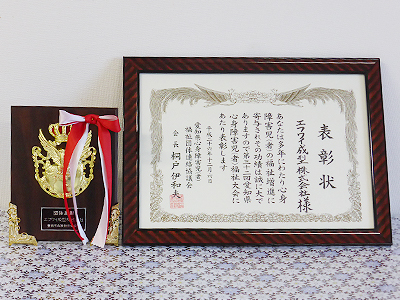 表彰状
エフワイ成型株式会社様
あなたは多年にわたり心身
障害児(者)の福祉増進に
寄与されその功績は誠に大で
ありますので第三十二回愛知県
心身障害児(者)福祉大会に
あたり表彰します
平成二十六年十二月六日
愛知県心身障害児(者)
福祉団体連絡協議会
会長 桐戸伊和夫
エフワイ成型株式会社